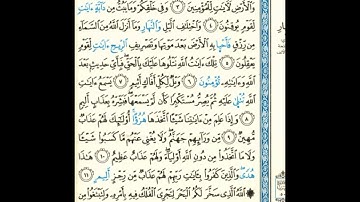 وَالْأَرْضِ لَآيَٰتٍ لِّلْمُؤْمِنِينَ ٣ وَفِي خَلْقِكُمْ وَمَا يَبُثُّ مِن دَآبَّةٍ ءَايَٰتٌ
لِّقَوْمٍ يُوقِنُونَ ٤ وَاخْتِلَٰفِ الَّيْلِ وَالنَّهَارِ وَمَآ أَنزَلَ اللَّهُ مِنَ السَّمَآءِ
مِن رِّزْقٍ فَأَحْيَا بِهِ الْأَرْضَ بَعْدَ مَوْتِهَا وَتَصْرِيفِ الرِّيَٰحِ ءَايَٰتٌ لِّقَوْمٍ
يَعْقِلُونَ ٥ تِلْكَ ءَايَٰتُ اللَّهِ نَتْلُوهَا عَلَيْكَ بِالْحَقِّ فَبِأَيِّ حَدِيثٍ بَعْدَ
اللَّهِ وَءَايَٰتِهِ تُؤْمِنُونَ ٦ وَيْلٌ لِّكُلِّ أَفَّاكٍ أَثِيمٍ ٧ يَسْمَعُ ءَايَٰتِ
اللَّهِ تُتْلَىٰ عَلَيْهِ ثُمَّ يُصِرُّ مُسْتَكْبِرًا كَأَن لَّمْ يَسْمَعْهَا فَبَشِّرْهُ بِعَذَابٍ أَلِيمٍ
٨ وَإِذَا عَلِمَ مِنْ ءَايَٰتِنَا شَيْـًٔا اتَّخَذَهَا هُزُؤًا أُو۟لَٰٓئِكَ لَهُمْ عَذَابٌ
مُّهِينٌ ٩ مِّن وَرَآئِهِمْ جَهَنَّمُ وَلَا يُغْنِي عَنْهُم مَّا كَسَبُوا شَيْـًٔا
وَلَا مَا اتَّخَذُوا مِن دُونِ اللَّهِ أَوْلِيَآءَ وَلَهُمْ عَذَابٌ عَظِيمٌ ١٠ هَٰذَا
هُدًى وَالَّذِينَ كَفَرُوا بِـَٔايَٰتِ رَبِّهِمْ لَهُمْ عَذَابٌ مِّن رِّجْزٍ أَلِيمٍ ١١
اللَّهُ الَّذِي سَخَّرَ لَكُمُ الْبَحْرَ لِتَجْرِيَ الْفُلْكُ فِيهِ بِأَمْرِهِ وَلِتَبْتَغُوا مِن